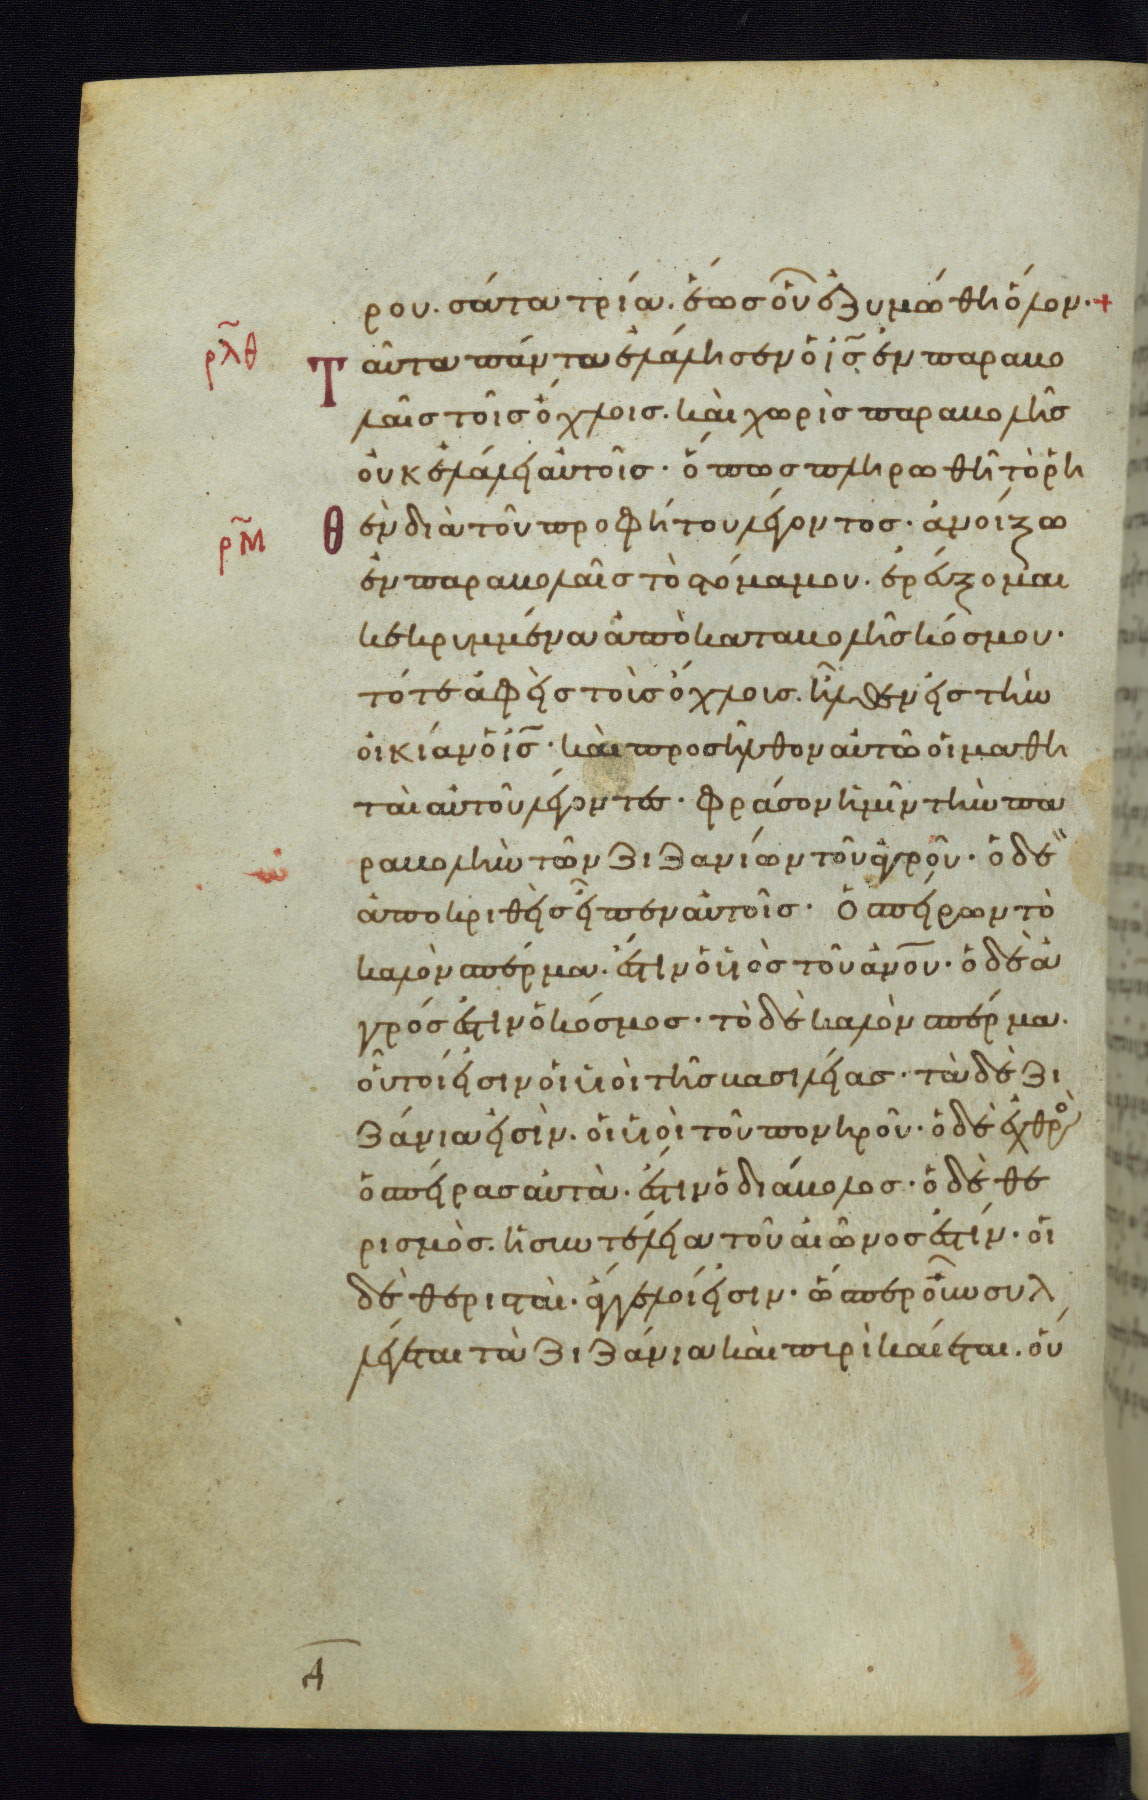 ρου. σάτα τρία. ἕως οὗ ἐζυμώθη ὅλον. +
ρλθ Ταῦτα πάντα ἐλάλησεν ὁ ις ἐν παραβο
λαῖς τοῖς ὄχλοις. καὶ χωρὶς παραβολῆς
οὐκ ἐλάλει αὐτοῖς· ὅπως πληρωθῆ τὸ ῥη
ρμ θὲν διὰ τοῦ προφήτου λέγοντος· ἀνοίξω
ἐν παραβολαῖς τὸ στόμα μου. ἐρεύξομαι
κεκρυμμένα ἀπὸ καταβολῆς κόσμου·
τότε ἀφεὶς τοὶς ὄχλοις. ἦλθεν εἰς τὴν
οἰκίαν ὁ ις· καὶ προσῆλθον αὐτῶ οἱ μαθη
ταὶ αὐτοῦ λέγοντες· φράσον ἡμῖν τὴν πα
ραβολὴν τῶν ζιζανίων τοῦ ἀγροῦ· ὁ δὲ
ἀποκριθεὶς εἶπεν αὐτοῖς· Ὁ σπείρων τὸ
καλὸν σπέρμα. ἐστὶν ὁ υἱὸς τοῦ ανου· ὁ δὲ ἀ
γρός ἐστιν ὁ κόσμος· τὸ δὲ καλὸν σπέρμα.
οὗτοί εἰσιν οἱ υἱοὶ τῆς βασιλείας· τὰ δὲ ζι
ζάνια εἰσὶν. οἱ υἱοὶ τοῦ πονηροῦ· ὁ δὲ ἐχθρὸ
ὁ σπείρας αὐτὰ· ἐστιν ὁ διάβολος· ὁ δὲ θε
ρισμὸς. ἡ συντέλεια τοῦ αἰῶνος ἐστίν· οἱ
δὲ θερισταὶ· ἄγγελοί εἰσιν· ὥσπερ οὖν συλ
λέγεται τὰ ζιζάνια καὶ πυρὶ καίεται. οὕ
Δ